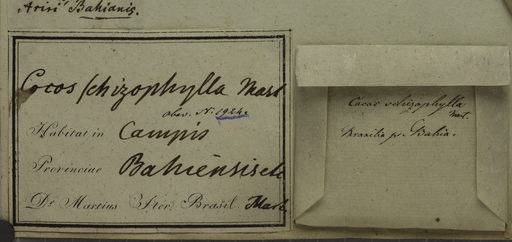 „Ariri" Bahianis.
Cocos schizophylla Mart
obsv. N. 1924.
Habitat in Campis
Provinciae Bahiensis etc
Dr Martius Iter Brasil. Mart.
Cocos schizophylla
Mart.
Brasilia pr. Bahia.